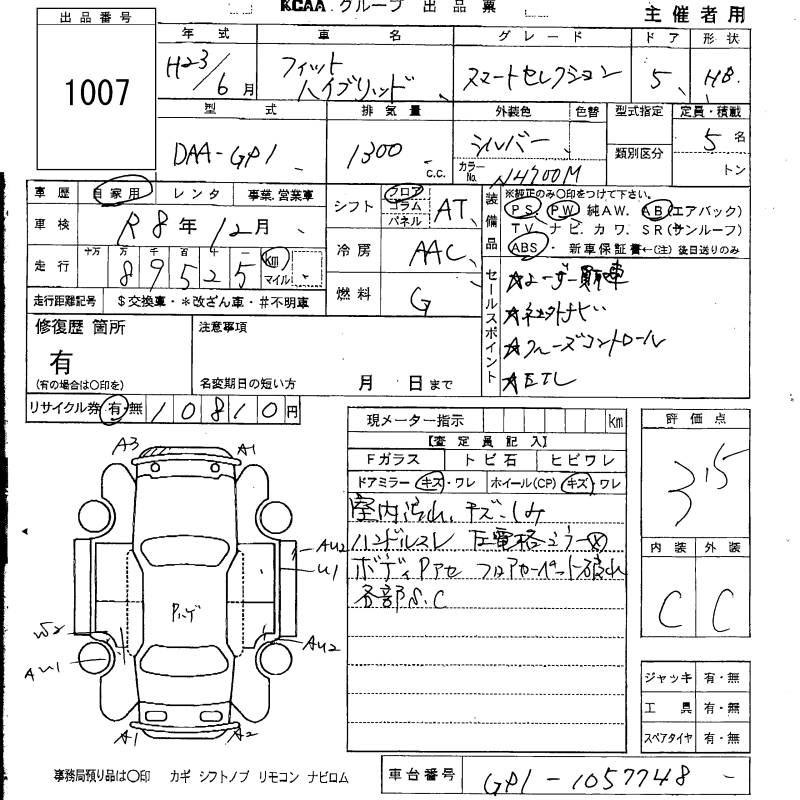 KCAA グループ 出品票 主催者用
出品番号
1007
年式 車名 グレード ドア 形状
H23/6月 フィットハイブリッド スマートセレクション 5 HB
型式 排気量 外装色 色替 型式指定 定員・積載
DAA-GP1 1300 c.c. シルバー 類別区分 5名
カラーNo. NH700M トン
車歴 自家用 レンタ 事業.営業車
車検 R8年12月
走行 十万 万 千 百 十 一 89525 km マイル
走行距離記号 $交換車・*改ざん車・#不明車
シフト フロア コラム パネル AT
冷房 AAC
燃料 G
装備品 ※純正のみ〇印をつけて下さい。
PS. PW 純AW. AB(エアバック)
TV ナビ. カワ. SR(サンルーフ)
ABS・新車保証書←(注)後日送りのみ
セールスポイント
☆ユーザー買取車
☆社外ナビ
☆クルーズコントロール
☆ETC
修復歴 箇所
有
(有の場合は〇印を)
注意事項
名変期日の短い方 月 日まで
リサイクル券 有 無 10810円
現メーター指示 km
【査定員記入】
Fガラス トビ石 ヒビワレ
ドアミラー キズ・ワレ ホイール(CP) キズ・ワレ
室内汚れ、キズ・シミ
ハンドルスレ 左電格ミラー
ボディPアセ フロアカーペット破れ
各部S.C
評価点
3.5
内装 外装
C C
ジャッキ 有・無
工具 有・無
スペアタイヤ 有・無
A3 A1
AU2
U1
W2
AU2
AU1
A1 A2
事務局預り品は〇印 カギ シフトノブ リモコン ナビロム
車台番号 GP1-1057748